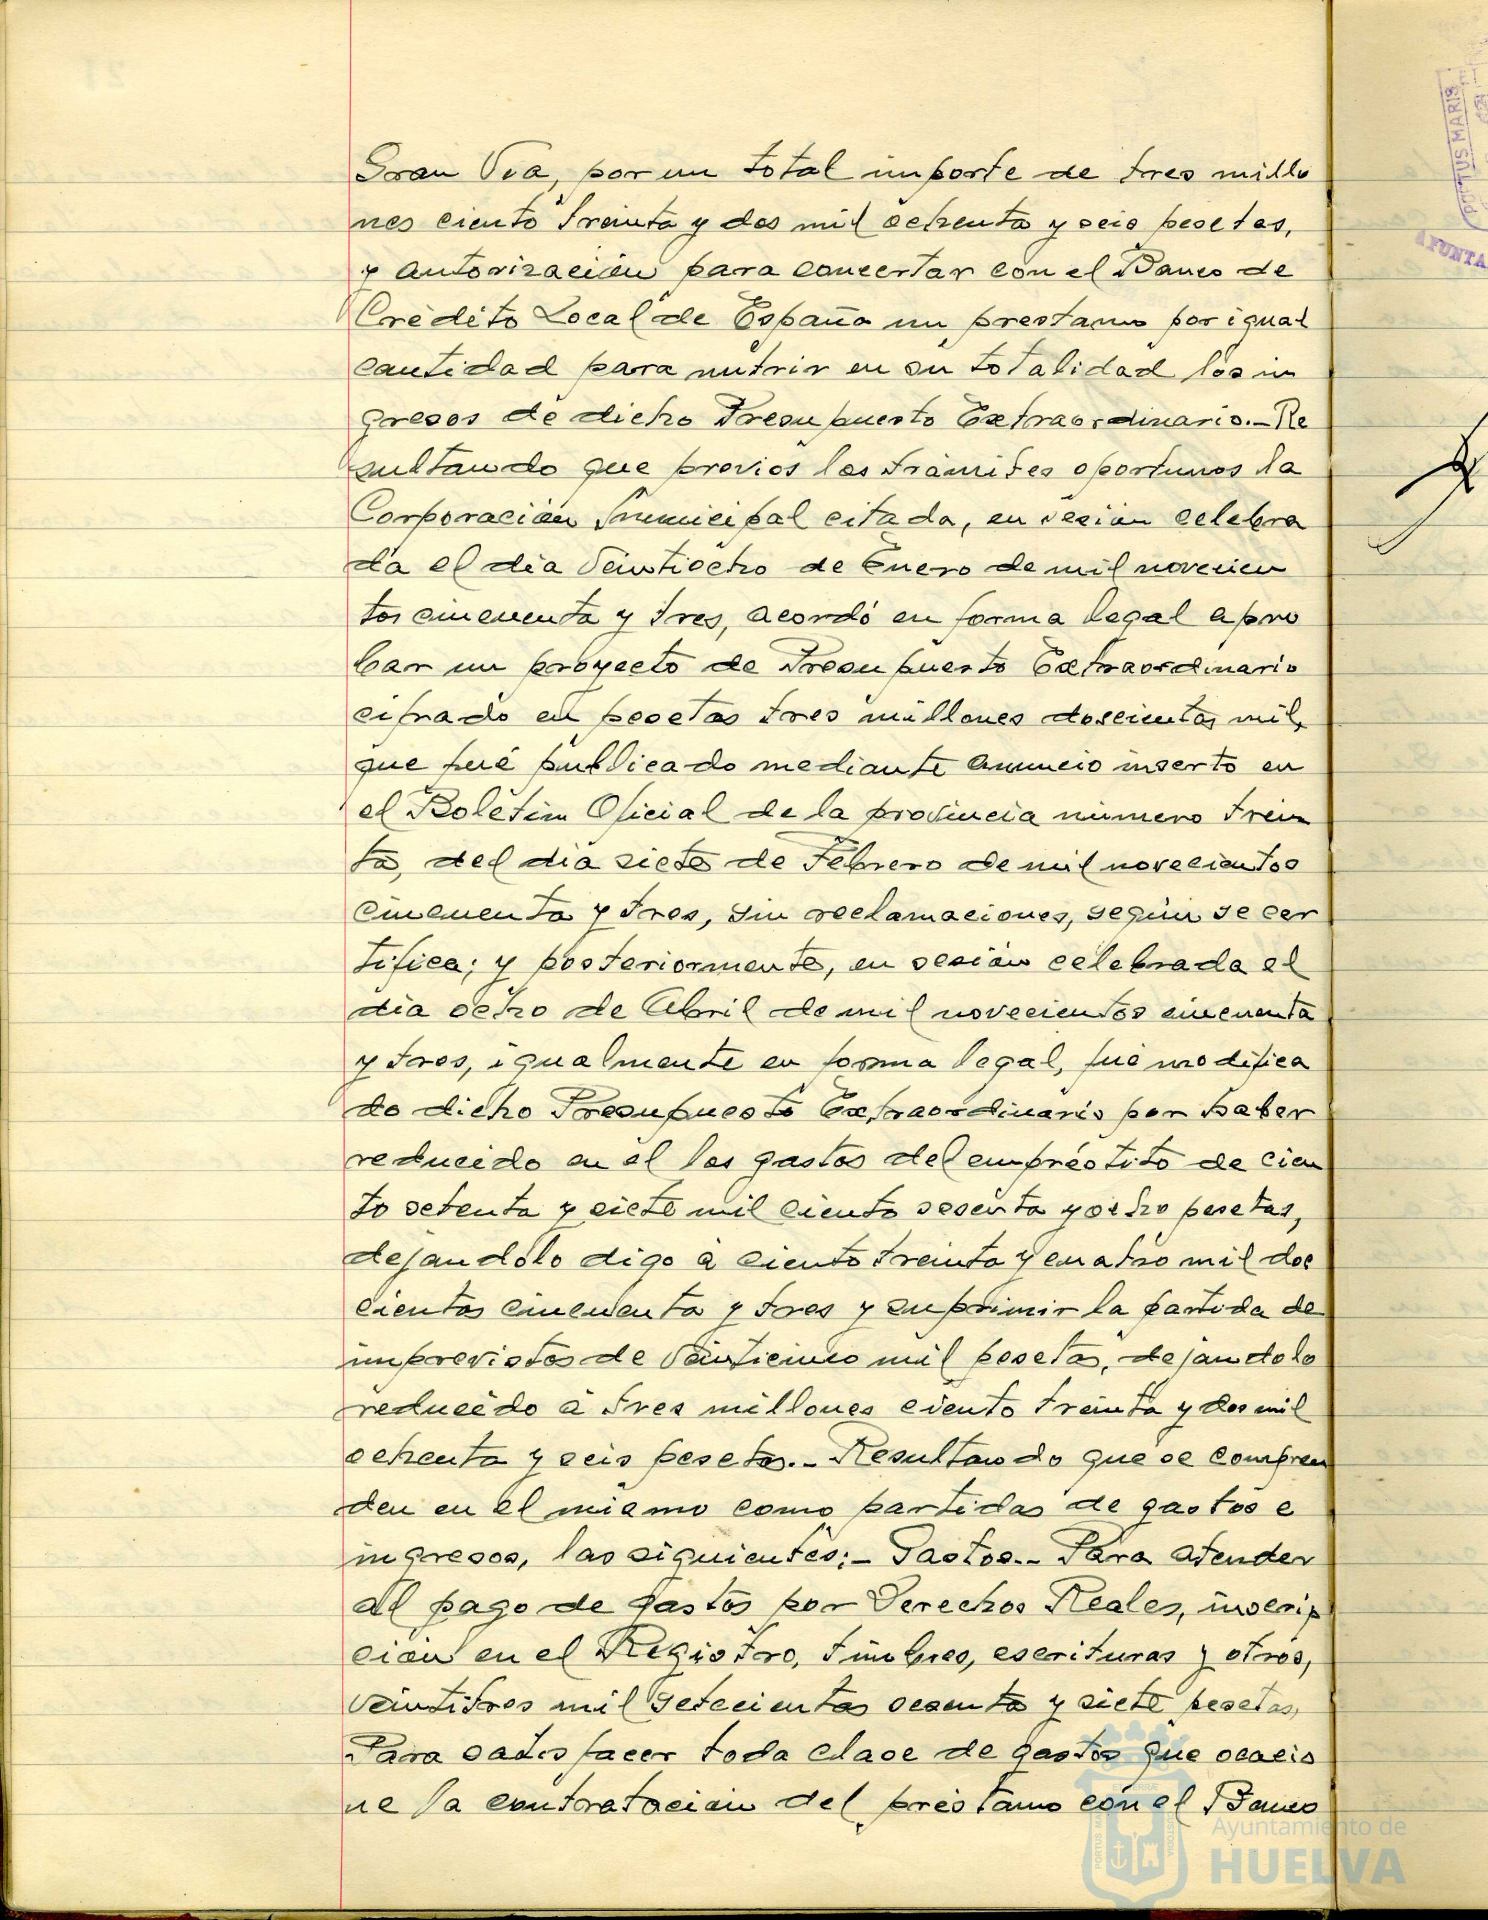 Gran Via, por un total importe de tres millo
nes ciento treinta y dos mil ochenta y seis pesetas,
y autorización para concertar con el Banco de
Crédito Local de España un prestamo por igual
cantidad para nutrir en su totalidad los in
gresos de dicho Presupuesto Extraordinario.- Re
sultando que previos los trámites oportunos la
Corporación Municipal citada, en sesión celebra
da el dia veintiocho de Enero de mil novecien
tos cincuenta y tres, acordó en forma legal apro
bar un proyecto de Presupuesto Extraordinario
cifrado en pesetas tres millones doscientas mil,
que fué publicado mediante anuncio inserto en
el Boletin Oficial de la provincia número trein
ta, del dia siete de Febrero de mil novecientos
cincuenta y tres, sin reclamaciones, según se cer
tifica; y posteriormente, en sesión celebrada el
dia ocho de Abril de mil novecientos cincuenta
y tres, igualmente en forma legal, fué modifica
do dicho Presupuesto Extraordinario por haber
reducido en el los gastos del empréstito de cien
to setenta y siete mil ciento sesenta y ocho pesetas,
dejandolo digo á ciento treinta y cuatro mil dos
cientas cincuenta y tres y suprimir la partida de
imprevistos de veinticinco mil pesetas, dejandolo
reducido á tres millones ciento treinta y dos mil
ochenta y seis pesetas.- Resultando que se compren
den en el mismo como partidas de gastos e
ingresos, las siguientes:- Gastos.- Para atender
al pago de gastos por Derechos Reales, inscrip
ción en el Registro, timbres, escrituras y otros,
veintitres mil setecientas sesenta y siete pesetas,
Para satisfacer toda clase de gastos que ocasio
ne la contratación del préstamo con el Banco
PORTUS MARIS ET
AYUNTA
Ayuntamiento de
HUELVA